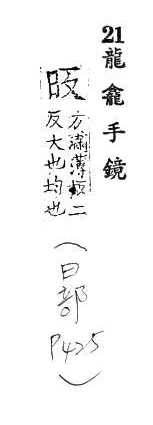 21龍龕手鏡
昄
方滿薄板二
反大也均也
(日部
P425)